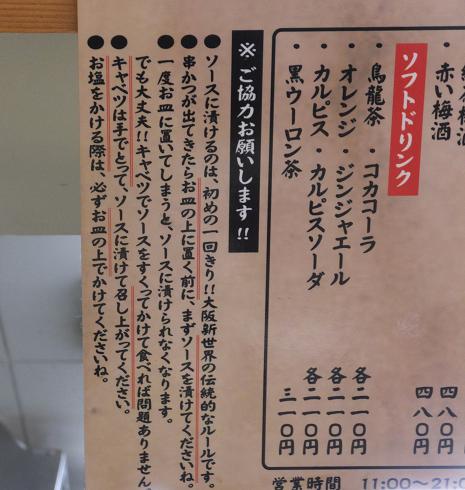 赤い梅酒
四八〇円
四八〇円
ソフトドリンク
・烏龍茶 ・コカコーラ 各二一〇円
・オレンジ・ジンジャエール 各二一〇円
・カルピス・カルピスソーダ 各二一〇円
・黒ウーロン茶 三一〇円
営業時間 11:00〜21:0
※ご協力お願いします!!
●ソースに漬けるのは、初めの一回きり!!大阪新世界の伝統的なルールです。
●串かつが出てきたらお皿の上に置く前に、まずソースを漬けてくださいね。
●一度お皿に置いてしまうと、ソースに漬けられなくなります。
でも大丈夫!!キャベツでソースをすくってかけて食べれば問題ありません。
●キャベツは手でとって、ソースに漬けて召し上がってください。
●お塩をかける際は、必ずお皿の上でかけてくださいね。